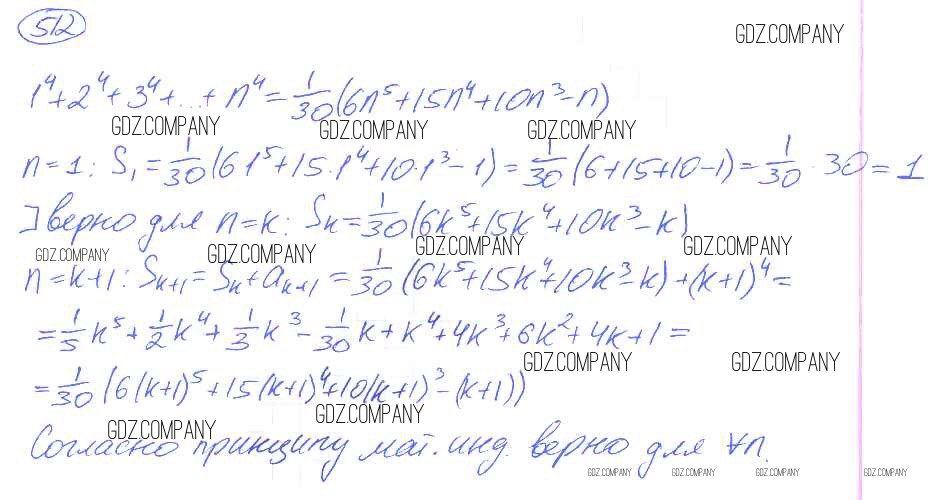 512
GDZ.COMPANY
1⁴+2⁴+3⁴+...+n⁴=1/30(6n⁵+15n⁴+10n³-n)
GDZ.COMPANY GDZ.COMPANY GDZ.COMPANY
n=1: S₁=1/30(6·1⁵+15·1⁴+10·1³-1)=1/30(6+15+10-1)=1/30·30=1
] верно для n=k: Sₖ=1/30(6k⁵+15k⁴+10k³-k)
GDZ.COMPANY GDZ.COMPANY GDZ.COMPANY GDZ.COMPANY
n=k+1: Sₖ₊₁=Sₖ+aₖ₊₁=1/30(6k⁵+15k⁴+10k³-k)+(k+1)⁴=
=1/5k⁵+1/2k⁴+1/3k³-1/30k+k⁴+4k³+6k²+4k+1=
GDZ.COMPANY GDZ.COMPANY
=1/30(6(k+1)⁵+15(k+1)⁴+10(k+1)³-(k+1))
GDZ.COMPANY GDZ.COMPANY
Согласно принципу мат. инд. верно для ∀n.
GDZ.COMPANY GDZ.COMPANY GDZ.COMPANY GDZ.COMPANY